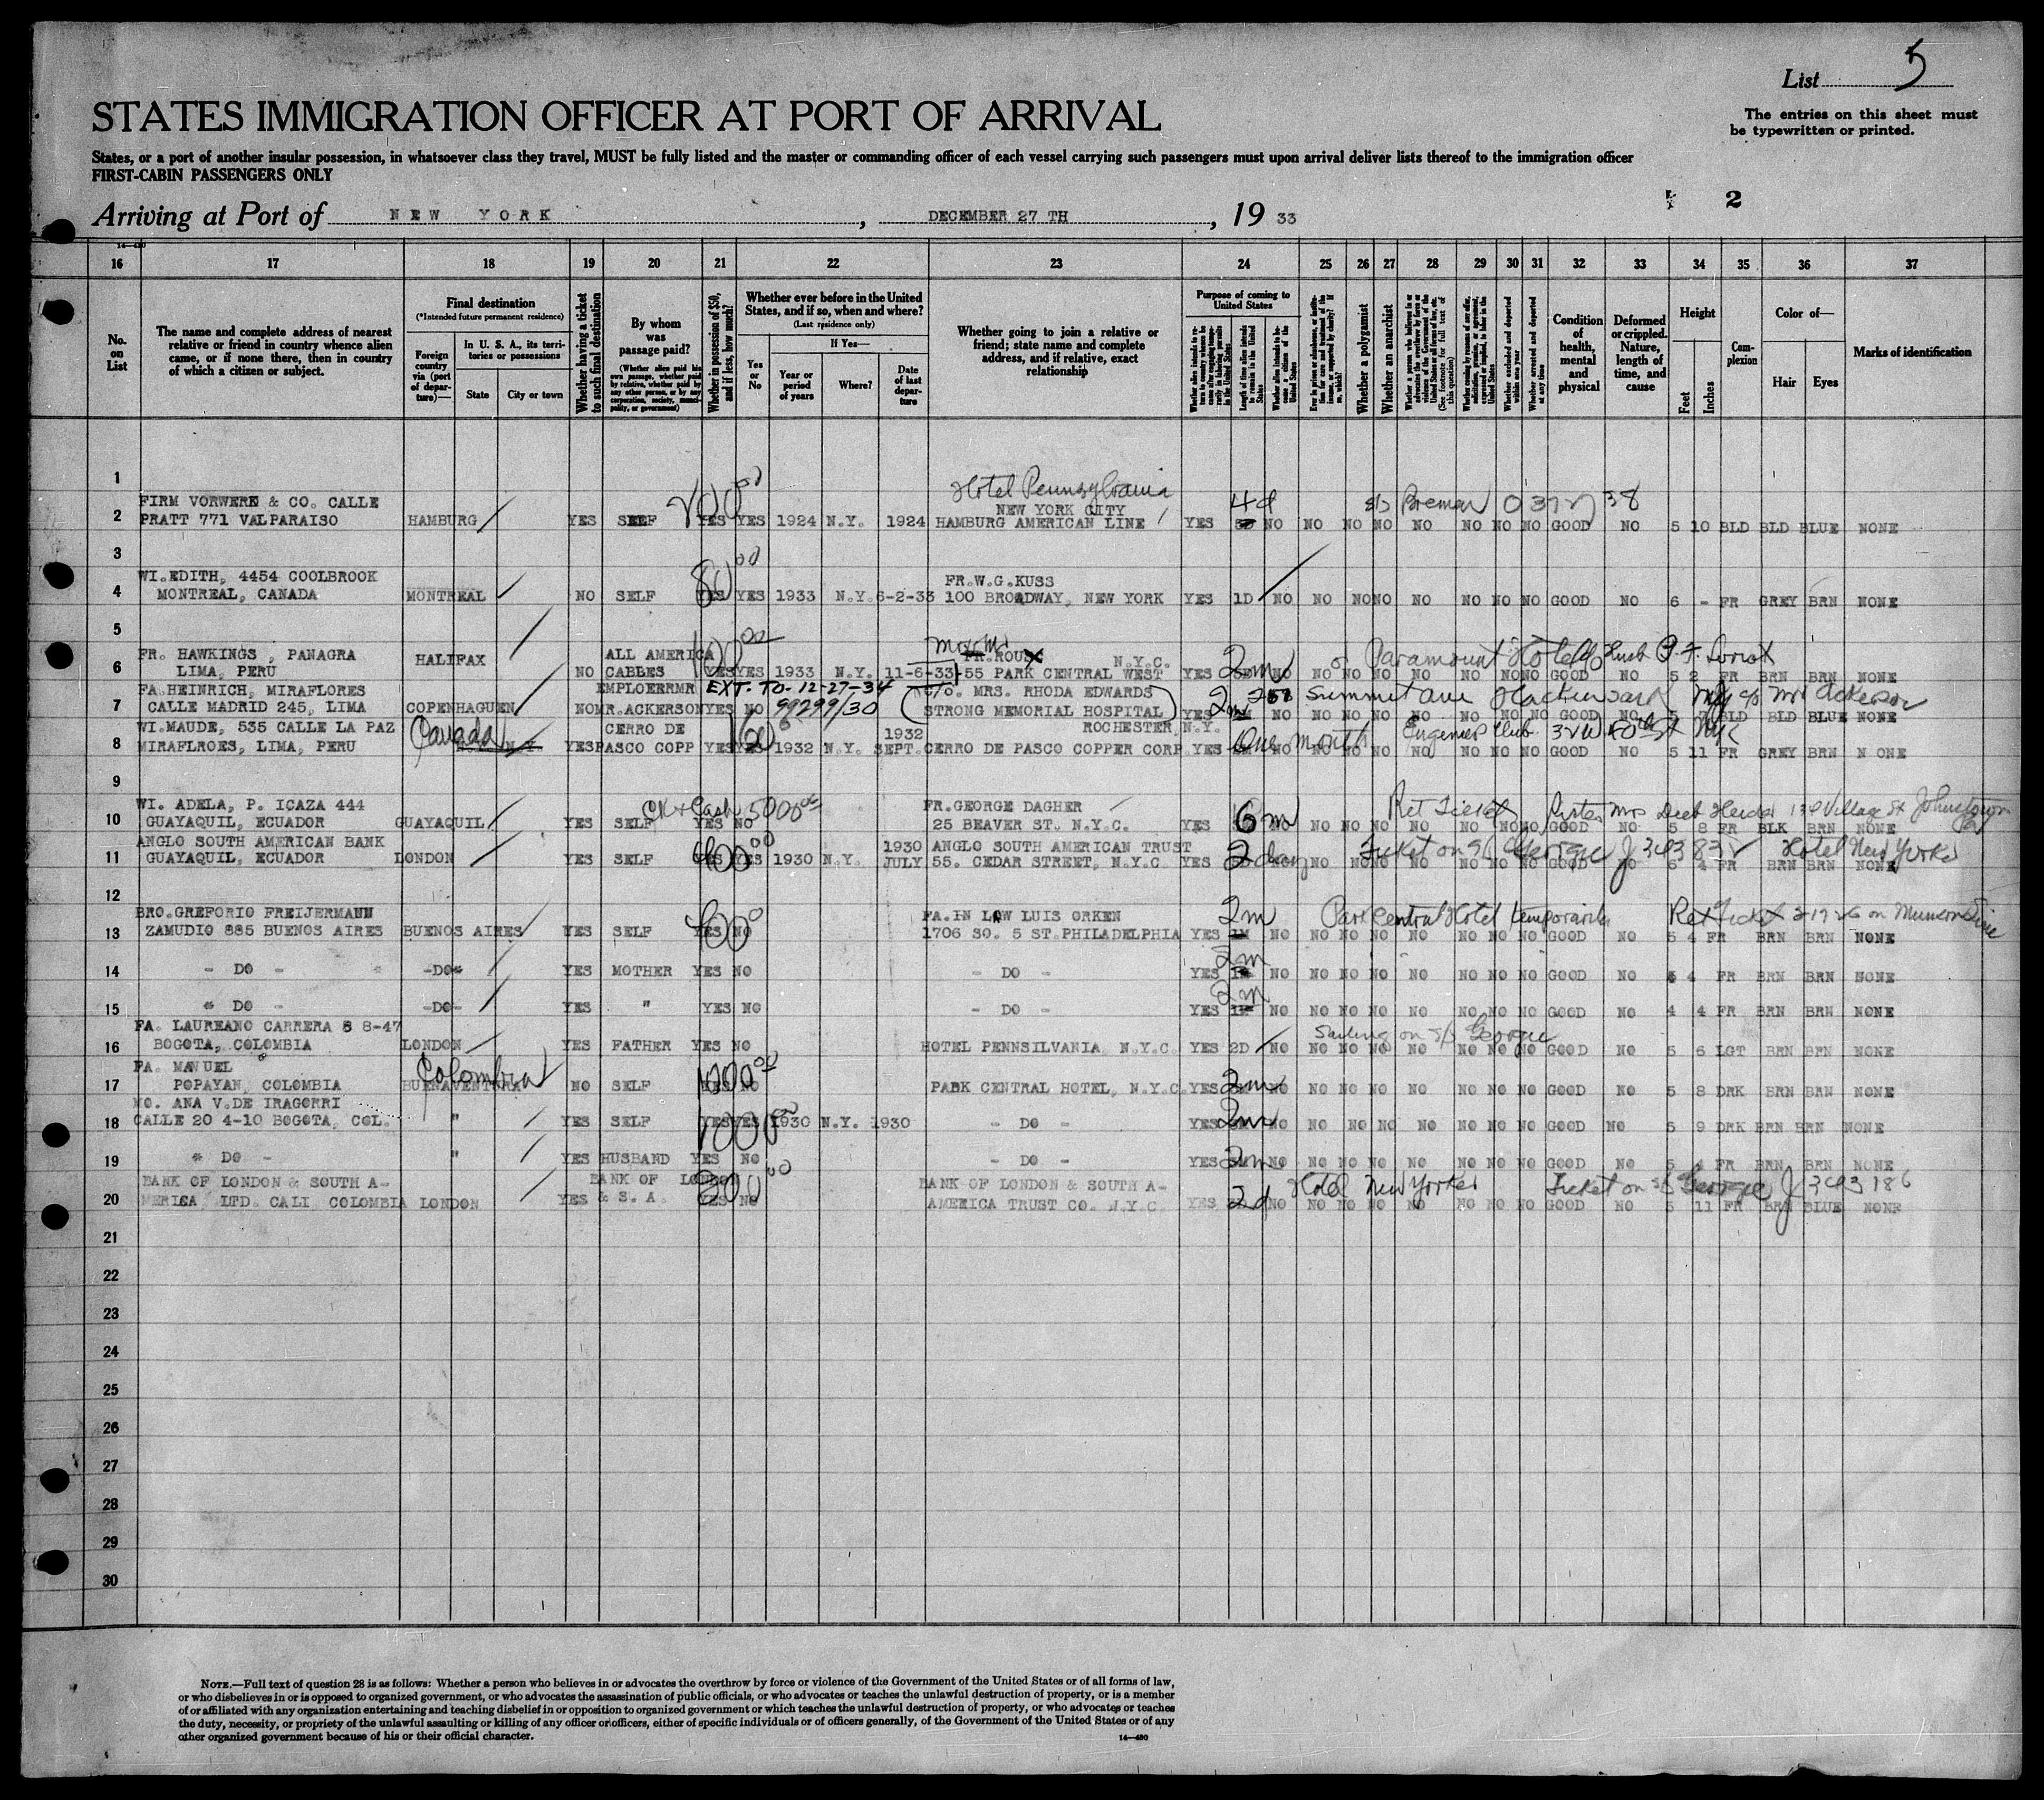 List 5
STATES IMMIGRATION OFFICER AT PORT OF ARRIVAL
The entries on this sheet must
be typewritten or printed.
States, or a port of another insular possession, in whatsoever class they travel, MUST be fully listed and the master or commanding officer of each vessel carrying such passengers must upon arrival deliver lists thereof to the immigration officer
FIRST-CABIN PASSENGERS ONLY
2
Arriving at Port of NEW YORK, DECEMBER 27 TH, 19 33
14-480
16 17 18 19 20 21 22 23 24 25 26 27 28 29 30 31 32 33 34 35 36 37
No. on List
The name and complete address of nearest relative or friend in country whence alien came, or if none there, then in country of which a citizen or subject.
Final destination
(*Intended future permanent residence)
Foreign country via (port of departure)—
In U. S. A., its territories or possessions
State
City or town
Whether having a ticket to such final destination
By whom was passage paid?
(Whether alien paid his own passage, whether paid by relative, whether paid by any other person, or by any corporation, society, municipality, or government)
Whether in possession of $50, and if less, how much?
Whether ever before in the United States, and if so, when and where?
(Last residence only)
If Yes—
Yes or No
Year or period of years
Where?
Date of last departure
Whether going to join a relative or friend; state name and complete address, and if relative, exact relationship
Purpose of coming to United States
Length of time alien intends to remain in the United States
Whether alien intends to become a citizen of the United States
Whether a polygamist
Whether an anarchist
Whether excluded and deported within one year
Whether arrested and deported at any time
Condition of health, mental and physical
Deformed or crippled. Nature, length of time, and cause
Height
Feet
Inches
Complexion
Color of—
Hair
Eyes
Marks of identification
1
Hotel Pennsylvania
FIRM VORWERK & CO. CALLE NEW YORK CITY 4d s/s Bremen
2 PRATT 771 VALPARAISO HAMBURG YES SELF YES YES 1924 N.Y. 1924 HAMBURG AMERICAN LINE YES NO NO NO NO NO NO NO NO GOOD NO 5 10 BLD BLD BLUE NONE
3
WI.EDITH, 4454 COOLBROOK 80 00 FR.W.G.KUSS
4 MONTREAL, CANADA MONTREAL NO SELF YES YES 1933 N.Y. 6-2-33 100 BROADWAY, NEW YORK YES 1D NO NO NO NO NO NO NO NO GOOD NO 6 - FR GREY BRN NONE
5
FR. HAWKINGS , PANAGRA HALIFAX ALL AMERICA N.Y.C. Paramount Hotel
6 LIMA, PERU NO CABBES YES YES 1933 N.Y. 11-6-33 55 PARK CENTRAL WEST YES 2m NO NO NO NO NO NO NO NO GOOD NO 5 2 FR BRN BRN NONE
FA.HEINRICH, MIRAFLORES EMPLOERRMR EXT. TO-12-27-34 C/O. MRS. RHODA EDWARDS Summit ave Hackensack NJ c/o Mr Ackerson
7 CALLE MADRID 245, LIMA COPENHAGUEN NO MR.ACKERSON YES NO 99299/30 STRONG MEMORIAL HOSPITAL YES 2m NO NO NO NO NO NO NO NO GOOD NO 5 7 BLD BLD BLUE NONE
WI.MAUDE, 535 CALLE LA PAZ Canada CERRO DE 1932 ROCHESTER, N.Y. One month Engineers Club 32 W 40th St NYC
8 MIRAFLROES, LIMA, PERU YES PASCO COPP YES YES 1932 N.Y. SEPT. CERRO DE PASCO COPPER CORP YES NO NO NO NO NO NO NO NO GOOD NO 5 11 FR GREY BRN N ONE
9
WI. ADELA, P. ICAZA 444 Ck & Cash 5000 00 FR.GEORGE DAGHER Ret Ticket Sister Mrs Village St Johnstown Pa
10 GUAYAQUIL, ECUADOR GUAYAQUIL YES SELF YES NO 25 BEAVER ST. N.Y.C. YES 6m NO NO NO NO NO NO NO GOOD NO 5 8 FR BLK BRN NONE
ANGLO SOUTH AMERICAN BANK 400 00 1930 ANGLO SOUTH AMERICAN TRUST Ticket on s/s Georgic Hotel New Yorker
11 GUAYAQUIL, ECUADOR LONDON YES SELF YES YES 1930 N.Y. JULY 55. CEDAR STREET, N.Y.C YES 2 days NO NO NO NO NO NO NO GOOD NO 6 4 FR BRN BRN NONE
12
BRO.GREFORIO FREIJERMANN 400 FA.IN LAW LUIS ORKEN 2m Park Central Hotel temporarily Ret Ticket on Munson Line
13 ZAMUDIO 885 BUENOS AIRES BUENOS AIRES YES SELF YES NO 1706 SO. 5 ST.PHILADELPHIA YES 1M NO NO NO NO NO NO NO NO GOOD NO 5 4 FR BRN BRN NONE
2m
14 - DO - -DO- YES MOTHER YES NO - DO - YES NO NO NO NO NO NO NO NO GOOD NO 4 FR BRN BRN NONE
2m
15 " DO - -DO- YES " YES NO - DO - YES NO NO NO NO NO NO NO GOOD NO 4 4 FR BRN BRN NONE
FA. LAUREANO CARRERA 8 8-47 Sailing on s/s Georgic
16 BOGOTA, COLOMBIA LONDON YES FATHER YES NO HOTEL PENNSILVANIA, N.Y.C. YES 2D NO NO NO NO NO NO NO NO GOOD NO 5 6 LGT BRN BRN NONE
FA. MANUEL Colombia
17 POPAYAN, COLOMBIA BUENAVENTURA NO SELF YES NO PARK CENTRAL HOTEL, N.Y.C. YES 2m NO NO NO NO NO NO NO NO GOOD NO 5 8 DRK BRN BRN NONE
MO. ANA V.DE IRAGORRI
18 CALLE 20 4-10 BOGOTA, COL. " YES SELF YES YES 1930 N.Y. 1930 - DO - YES 2m NO NO NO NO NO NO NO NO GOOD NO 5 9 DRK BRN BRN NONE
19 " DO - " YES HUSBAND YES NO - DO - YES 2m NO NO NO NO NO NO NO NO GOOD NO 5 4 FR BRN BRN NONE
BANK OF LONDON & SOUTH A- BANK OF LONDON 200 00 BANK OF LONDON & SOUTH A- Hotel New Yorker Ticket on s/s Georgic
20 MERICA LTD. CALI COLOMBIA LONDON YES & S. A. YES NO AMERICA TRUST CO. N.Y.C. YES 2d NO NO NO NO NO NO NO NO GOOD NO 5 11 FR BRN BLUE NONE
21
22
23
24
25
26
27
28
29
30
NOTE.—Full text of question 28 is as follows: Whether a person who believes in or advocates the overthrow by force or violence of the Government of the United States or of all forms of law,
or who disbelieves in or is opposed to organized government, or who advocates the assassination of public officials, or who advocates or teaches the unlawful destruction of property, or is a member
of or affiliated with any organization entertaining and teaching disbelief in or opposition to organized government or which teaches the unlawful destruction of property, or who advocates or teaches
the duty, necessity, or propriety of the unlawful assaulting or killing of any officer or officers, either of specific individuals or of officers generally, of the Government of the United States or of any
other organized government because of his or their official character.
14-480